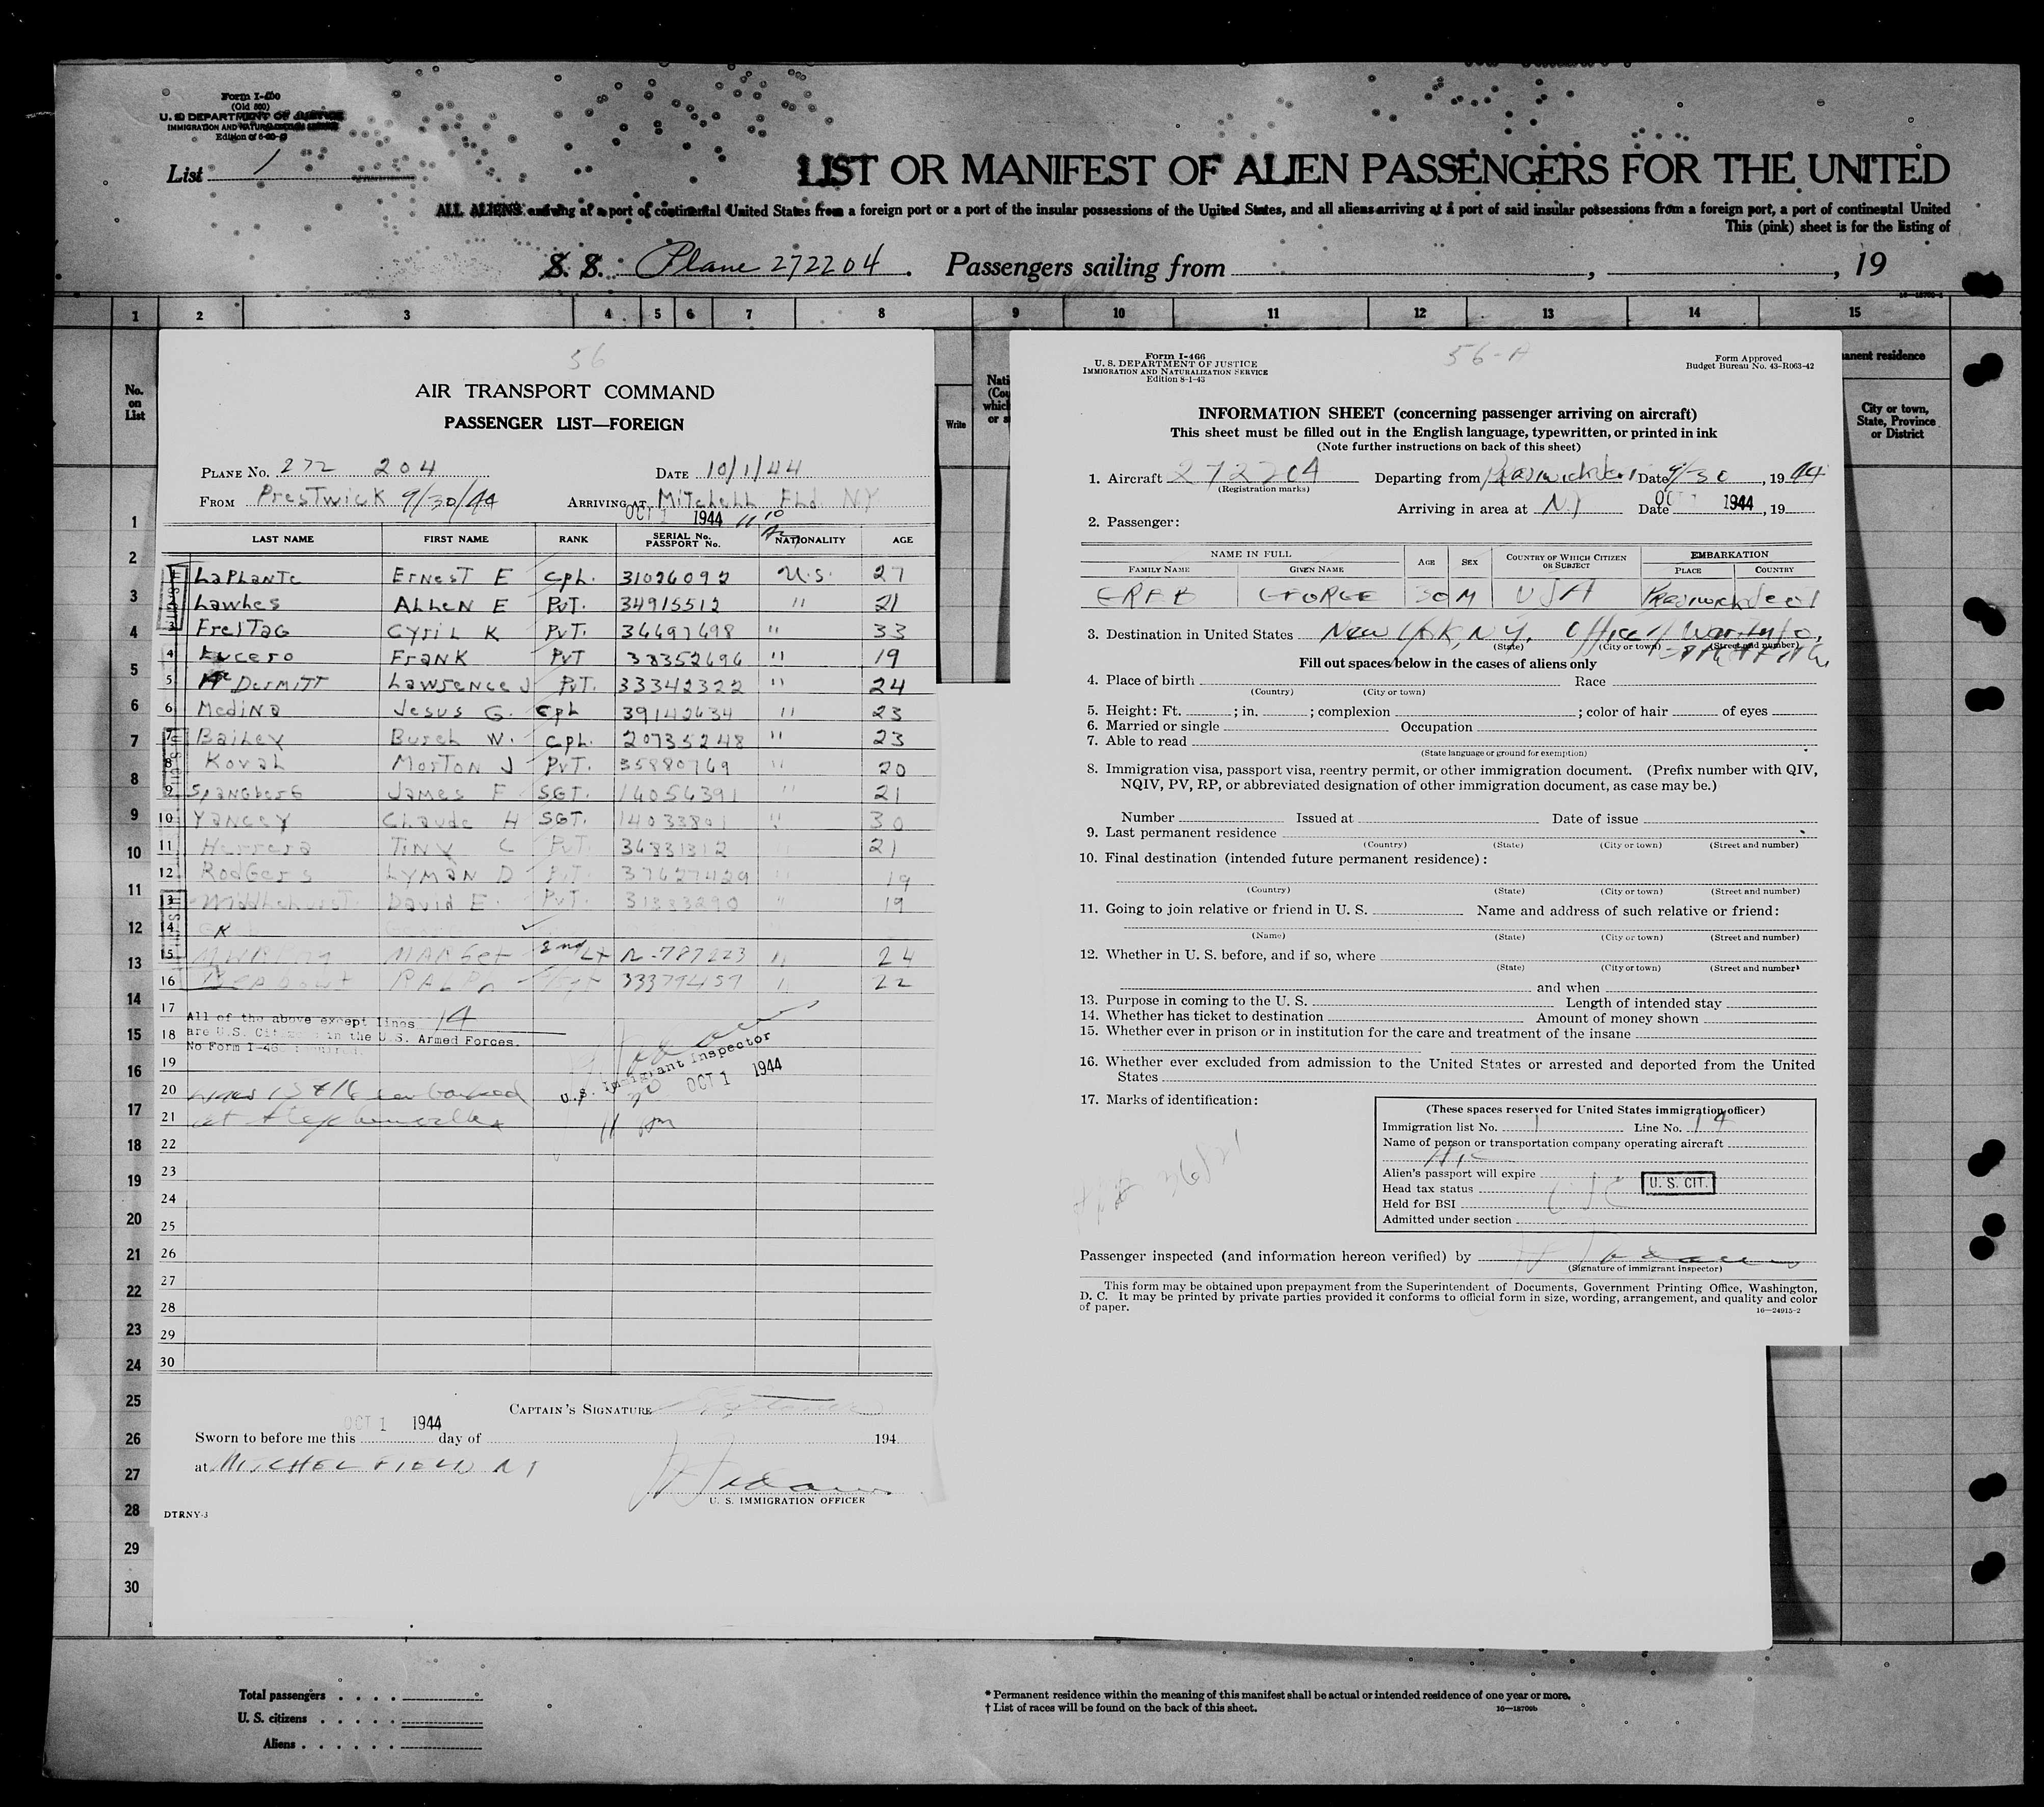 Form I-400
(Old 500)
U. S. DEPARTMENT OF JUSTICE
IMMIGRATION AND NATURALIZATION SERVICE
List 1
LIST OR MANIFEST OF ALIEN PASSENGERS FOR THE UNITED
ALL ALIENS arriving at a port of continental United States from a foreign port or a port of the insular possessions of the United States, and all aliens arriving at a port of said insular possessions from a foreign port, a port of continental United
This (pink) sheet is for the listing of
S. S. Plane 272204. Passengers sailing from , , 19
1 2 3 4 5 6 7 8 9 10 11 12 13 14 15
No. on List
Write
anent residence
City or town, State, Province or District
1
2
3
4
5
6
7
8
9
10
11
12
13
14
15
16
17
18
19
20
21
22
23
24
25
26
27
28
29
30
56
AIR TRANSPORT COMMAND
PASSENGER LIST—FOREIGN
PLANE NO. 272 204 DATE 10/1/44
FROM Prestwick 9/30/44 ARRIVING AT Mitchell Fld NY
OCT 1 1944 11 10
LAST NAME FIRST NAME RANK SERIAL No. PASSPORT No. NATIONALITY AGE
1 LaPlante Ernest E Cpl. 31026092 U.S. 27
2 Lawhes Allen E Pvt. 34915512 " 21
3 Freitag Cyril K Pvt. 36697698 " 33
4 Lucero Frank Pvt 38352696 " 19
5 McDermitt Lawrence J Pvt. 33342322 " 24
6 Medina Jesus G. Cpl 39142634 " 23
7 Bailey Burch W. Cpl. 20735248 " 23
8 Koval Morton J Pvt. 35880769 " 20
9 Spangberg James F SGT. 14056391 " 21
10 Yancey Claude H SGT. 14033801 " 30
11 Herrera Tiny C Pvt. 36831312 21
12 Rodgers Lyman D Pvt. 37627429 " 19
13 Middlehurst David E. Pvt. 31383290 " 19
14
15 2nd Lt N-787223 " 24
16 Ralph 33379457 " 22
17 All of the above except lines 14
18 are U.S. Citizens in the U.S. Armed Forces.
No Form I-466 required.
19
20 Lines 15 & 16 embarked
21 at Stephenville
U.S. Immigrant Inspector
OCT 1 1944
11 pm
22
23
24
25
26
27
28
29
30
CAPTAIN'S SIGNATURE
OCT 1 1944
Sworn to before me this day of 194
at MICHEL FIELD NY
U. S. IMMIGRATION OFFICER
DTRNY-3
56-A
Form I-466
U. S. DEPARTMENT OF JUSTICE
IMMIGRATION AND NATURALIZATION SERVICE
Edition 8-1-43
Form Approved
Budget Bureau No. 43-R063-42
INFORMATION SHEET (concerning passenger arriving on aircraft)
This sheet must be filled out in the English language, typewritten, or printed in ink
(Note further instructions on back of this sheet)
1. Aircraft 272204 Departing from Date 9/30, 1944
(Registration marks)
Arriving in area at N.Y Date OCT 1 1944, 19
2. Passenger:
NAME IN FULL AGE SEX COUNTRY OF WHICH CITIZEN OR SUBJECT EMBARKATION
FAMILY NAME GIVEN NAME PLACE COUNTRY
GEORGE M USA
3. Destination in United States New York, N.Y. Office of War Info,
(State) (City or town) (Street and number)
Fill out spaces below in the cases of aliens only
4. Place of birth Race
(Country) (City or town)
5. Height: Ft. ; in. ; complexion ; color of hair of eyes
6. Married or single Occupation
7. Able to read
(State language or ground for exemption)
8. Immigration visa, passport visa, reentry permit, or other immigration document. (Prefix number with QIV,
NQIV, PV, RP, or abbreviated designation of other immigration document, as case may be.)
Number Issued at Date of issue
9. Last permanent residence
(Country) (State) (City or town) (Street and number)
10. Final destination (intended future permanent residence):
(Country) (State) (City or town) (Street and number)
11. Going to join relative or friend in U. S. Name and address of such relative or friend:
(Name) (State) (City or town) (Street and number)
12. Whether in U. S. before, and if so, where
(State) (City or town) (Street and number)
and when
13. Purpose in coming to the U. S. Length of intended stay
14. Whether has ticket to destination Amount of money shown
15. Whether ever in prison or in institution for the care and treatment of the insane
16. Whether ever excluded from admission to the United States or arrested and deported from the United
States
17. Marks of identification:
(These spaces reserved for United States immigration officer)
Immigration list No. 1 Line No. 14
Name of person or transportation company operating aircraft
Alien's passport will expire
Head tax status U. S. CIT.
Held for BSI
Admitted under section
Passenger inspected (and information hereon verified) by
(Signature of immigrant inspector)
This form may be obtained upon prepayment from the Superintendent of Documents, Government Printing Office, Washington,
D. C. It may be printed by private parties provided it conforms to official form in size, wording, arrangement, and quality and color
of paper. 16—24915-2
Total passengers
U. S. citizens
Aliens
* Permanent residence within the meaning of this manifest shall be actual or intended residence of one year or more.
† List of races will be found on the back of this sheet. 16—18709b